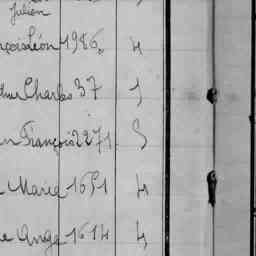 Julien
çois Léon 1986 4
Charles 37 5
n François 2271 5
Maria 1651 4
e Ange 1614 4